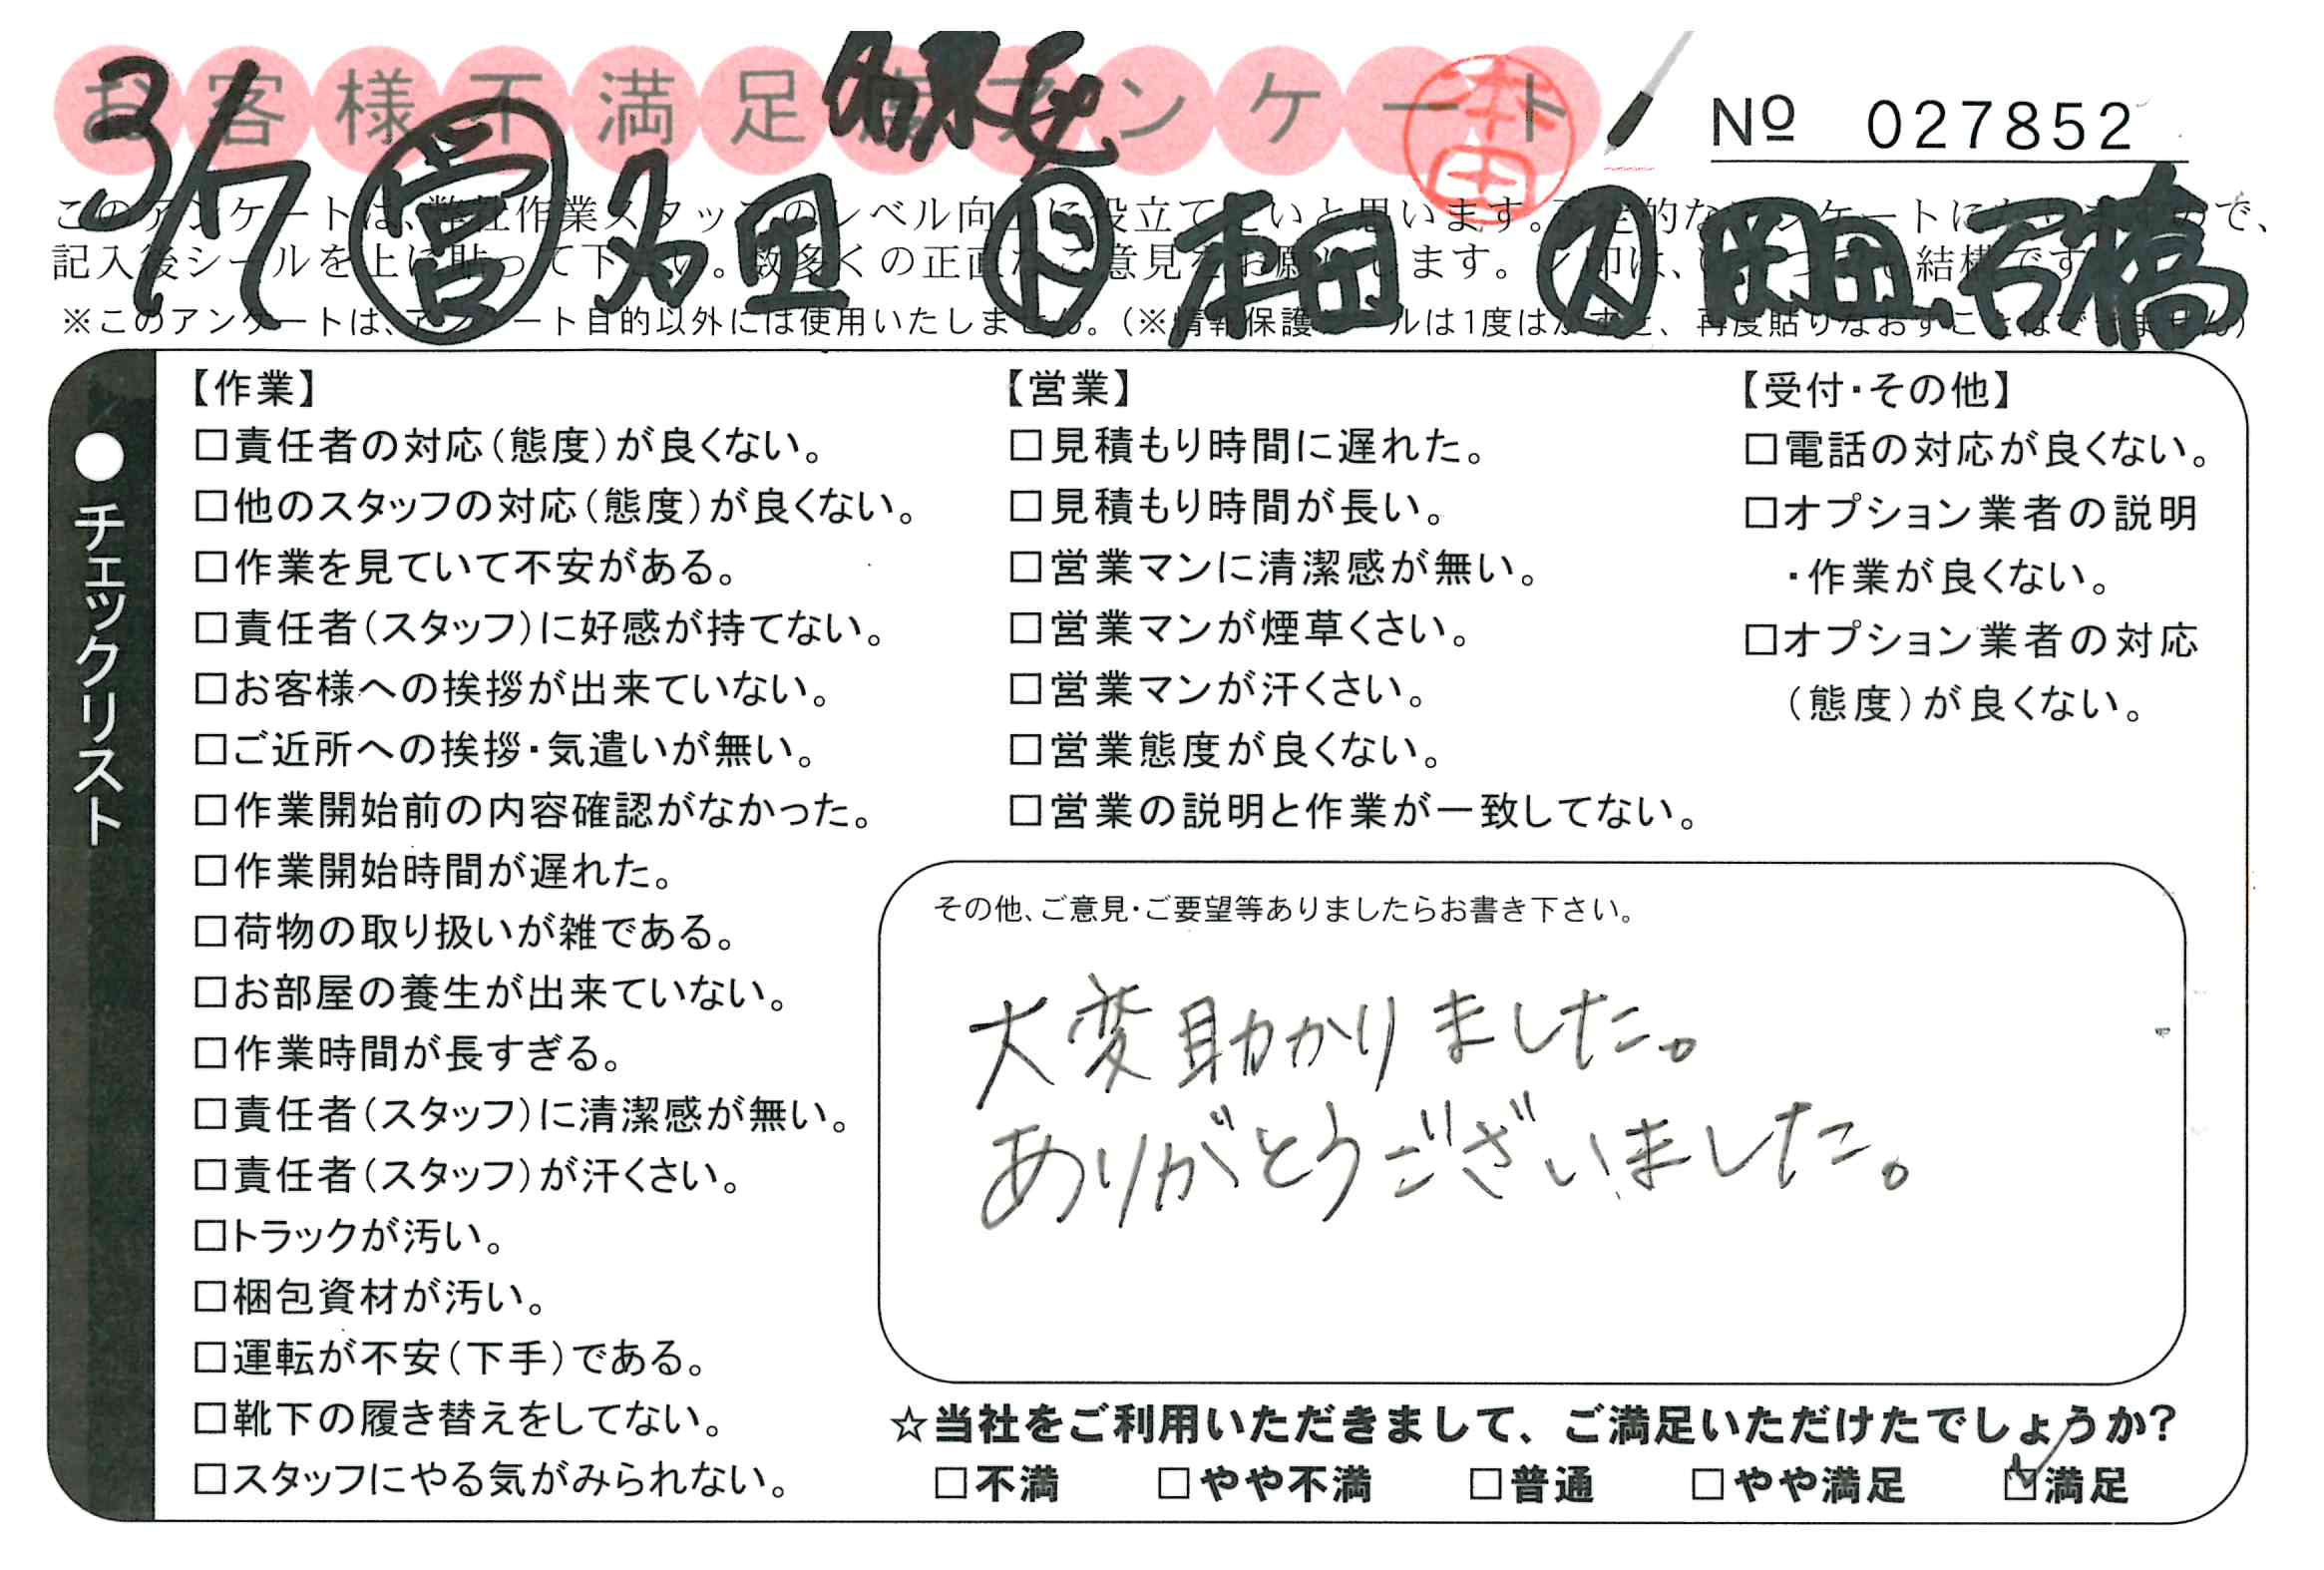 お客様不満足度アンケート
本田
№ 027852
3/7 営 多田 ト 本田 ス 岡田、石橋
このアンケートは、弊社作業スタッフのレベル向上に役立てたいと思います。
記入後シールを上に貼って下さい。数多くの正直なご意見をお願いします。
※このアンケートは、アンケート目的以外には使用いたしません。（※情報保護シールは1度はがすと、再度貼りなおすことはできません）
●チェックリスト
【作業】
□責任者の対応（態度）が良くない。
□他のスタッフの対応（態度）が良くない。
□作業を見ていて不安がある。
□責任者（スタッフ）に好感が持てない。
□お客様への挨拶が出来ていない。
□ご近所への挨拶・気遣いが無い。
□作業開始前の内容確認がなかった。
□作業開始時間が遅れた。
□荷物の取り扱いが雑である。
□お部屋の養生が出来ていない。
□作業時間が長すぎる。
□責任者（スタッフ）に清潔感が無い。
□責任者（スタッフ）が汗くさい。
□トラックが汚い。
□梱包資材が汚い。
□運転が不安（下手）である。
□靴下の履き替えをしてない。
□スタッフにやる気がみられない。
【営業】
□見積もり時間に遅れた。
□見積もり時間が長い。
□営業マンに清潔感が無い。
□営業マンが煙草くさい。
□営業マンが汗くさい。
□営業態度が良くない。
□営業の説明と作業が一致してない。
【受付・その他】
□電話の対応が良くない。
□オプション業者の説明
・作業が良くない。
□オプション業者の対応
（態度）が良くない。
その他、ご意見・ご要望等ありましたらお書き下さい。
大変助かりました。
ありがとうございました。
☆当社をご利用いただきまして、ご満足いただけたでしょうか？
□不満 □やや不満 □普通 □やや満足 ☑満足